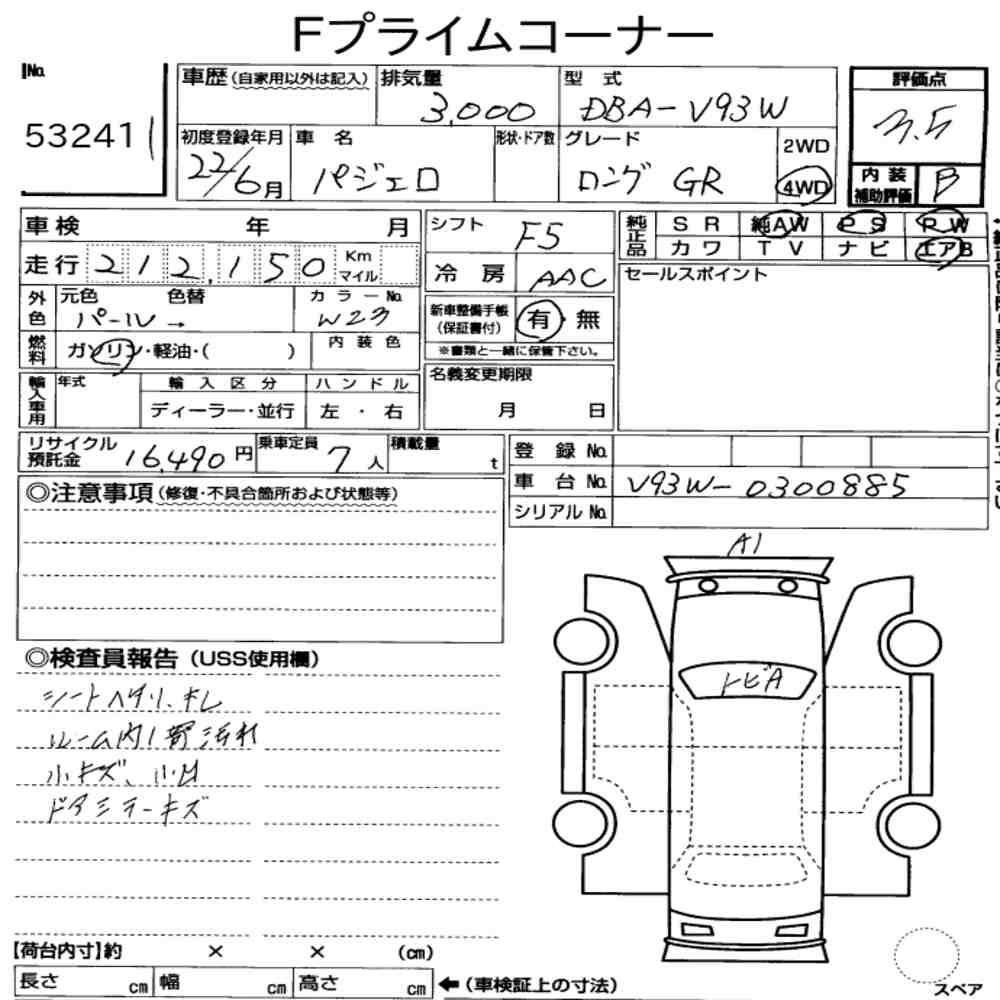 Fプライムコーナー
No.
532411
車歴 (自家用以外は記入)
排気量
3,000
型式
DBA-V93W
評価点
3.5
初度登録年月
22/6月
車名
パジェロ
形状・ドア数
グレード
ロング GR
2WD
4WD
内装
補助評価
B
車検 年 月
シフト
F5
純正品
SR 純AW PS PW
カワ TV ナビ エアB
走行 212,150 Km
マイル
冷房
AAC
セールスポイント
外色
元色 色替
パール →
カラーNo.
W23
新車整備手帳
(保証書付)
有・無
※書類と一緒に保管下さい。
燃料
ガソリン・軽油・( )
内装色
輸入車用
年式
輸入区分
ディーラー・並行
ハンドル
左・右
名義変更期限
月 日
リサイクル
預託金
16,490円
乗車定員
7人
積載量
t
登録No.
車台No.
V93W-0300885
シリアルNo.
◎注意事項 (修復・不具合箇所および状態等)
A1
トビA
◎検査員報告 (USS使用欄)
シートヘタリ、キレ
ルーム内
汚れ
小キズ、小凹
ドアミラーキズ
【荷台内寸】約 × × (cm)
長さ cm 幅 cm 高さ cm ←(車検証上の寸法)
スペア